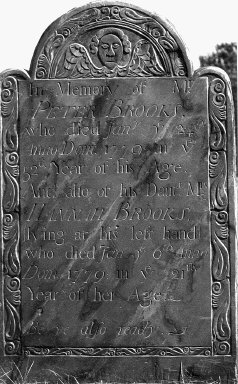 In Memory of Mr
PETER BROOKS
who died Janr ye 24th
Anno Domi 1779 in ye
Year of his Age.
And also of his Daur Ms
HANNAH BROOKS
lying at his left hand
who died Jany ye 6th Anno
Domi 1779, in ye 21st
Year of her Age.
Be ye also ready.